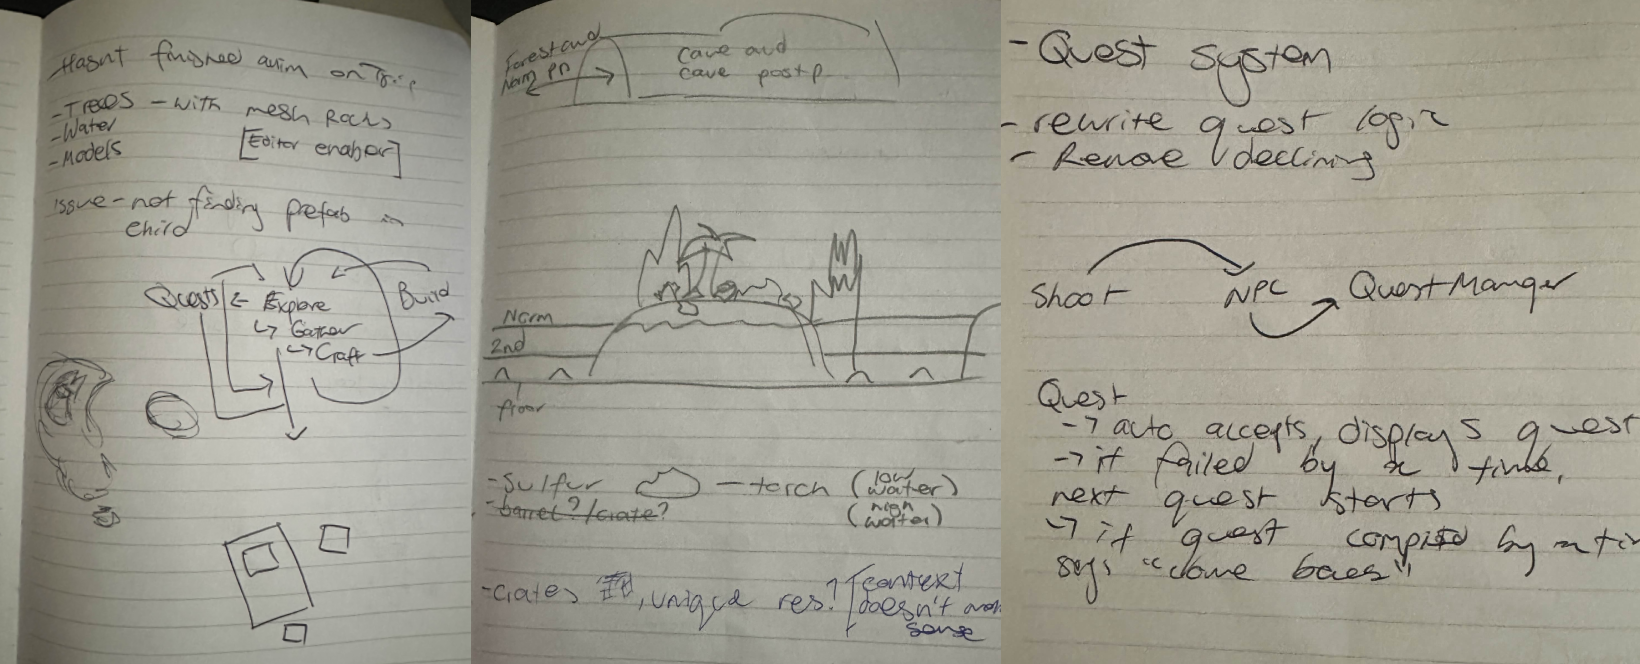 Hasnt finished anim on
-Trees - with mesh Rocks
-Water
-Models
[Editor enabler]
issue - not finding prefab in
child
Quests
Explore
Build
Gather
Craft
Forest and
Norm pp
cave and
cave postp.
Norm
2nd
floor
-Sulfur - torch (low water)
(high water)
-barrel?/crate?
-Crates , unique res? [context
doesn't
sense
-Quest system
-rewrite quest logic
- Remove declining
Shoot
NPC
QuestManger
Quest
-> auto accepts, displays quest
-> if failed by x time,
next quest starts
-> if quest by x
says "come back"